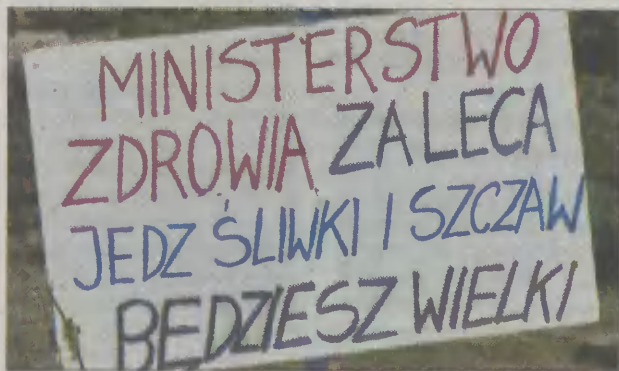 MINISTERSTWO
ZDROWIA ZALECA
JEDZ ŚLIWKI I SZCZAW
BĘDZIESZ WIELKI